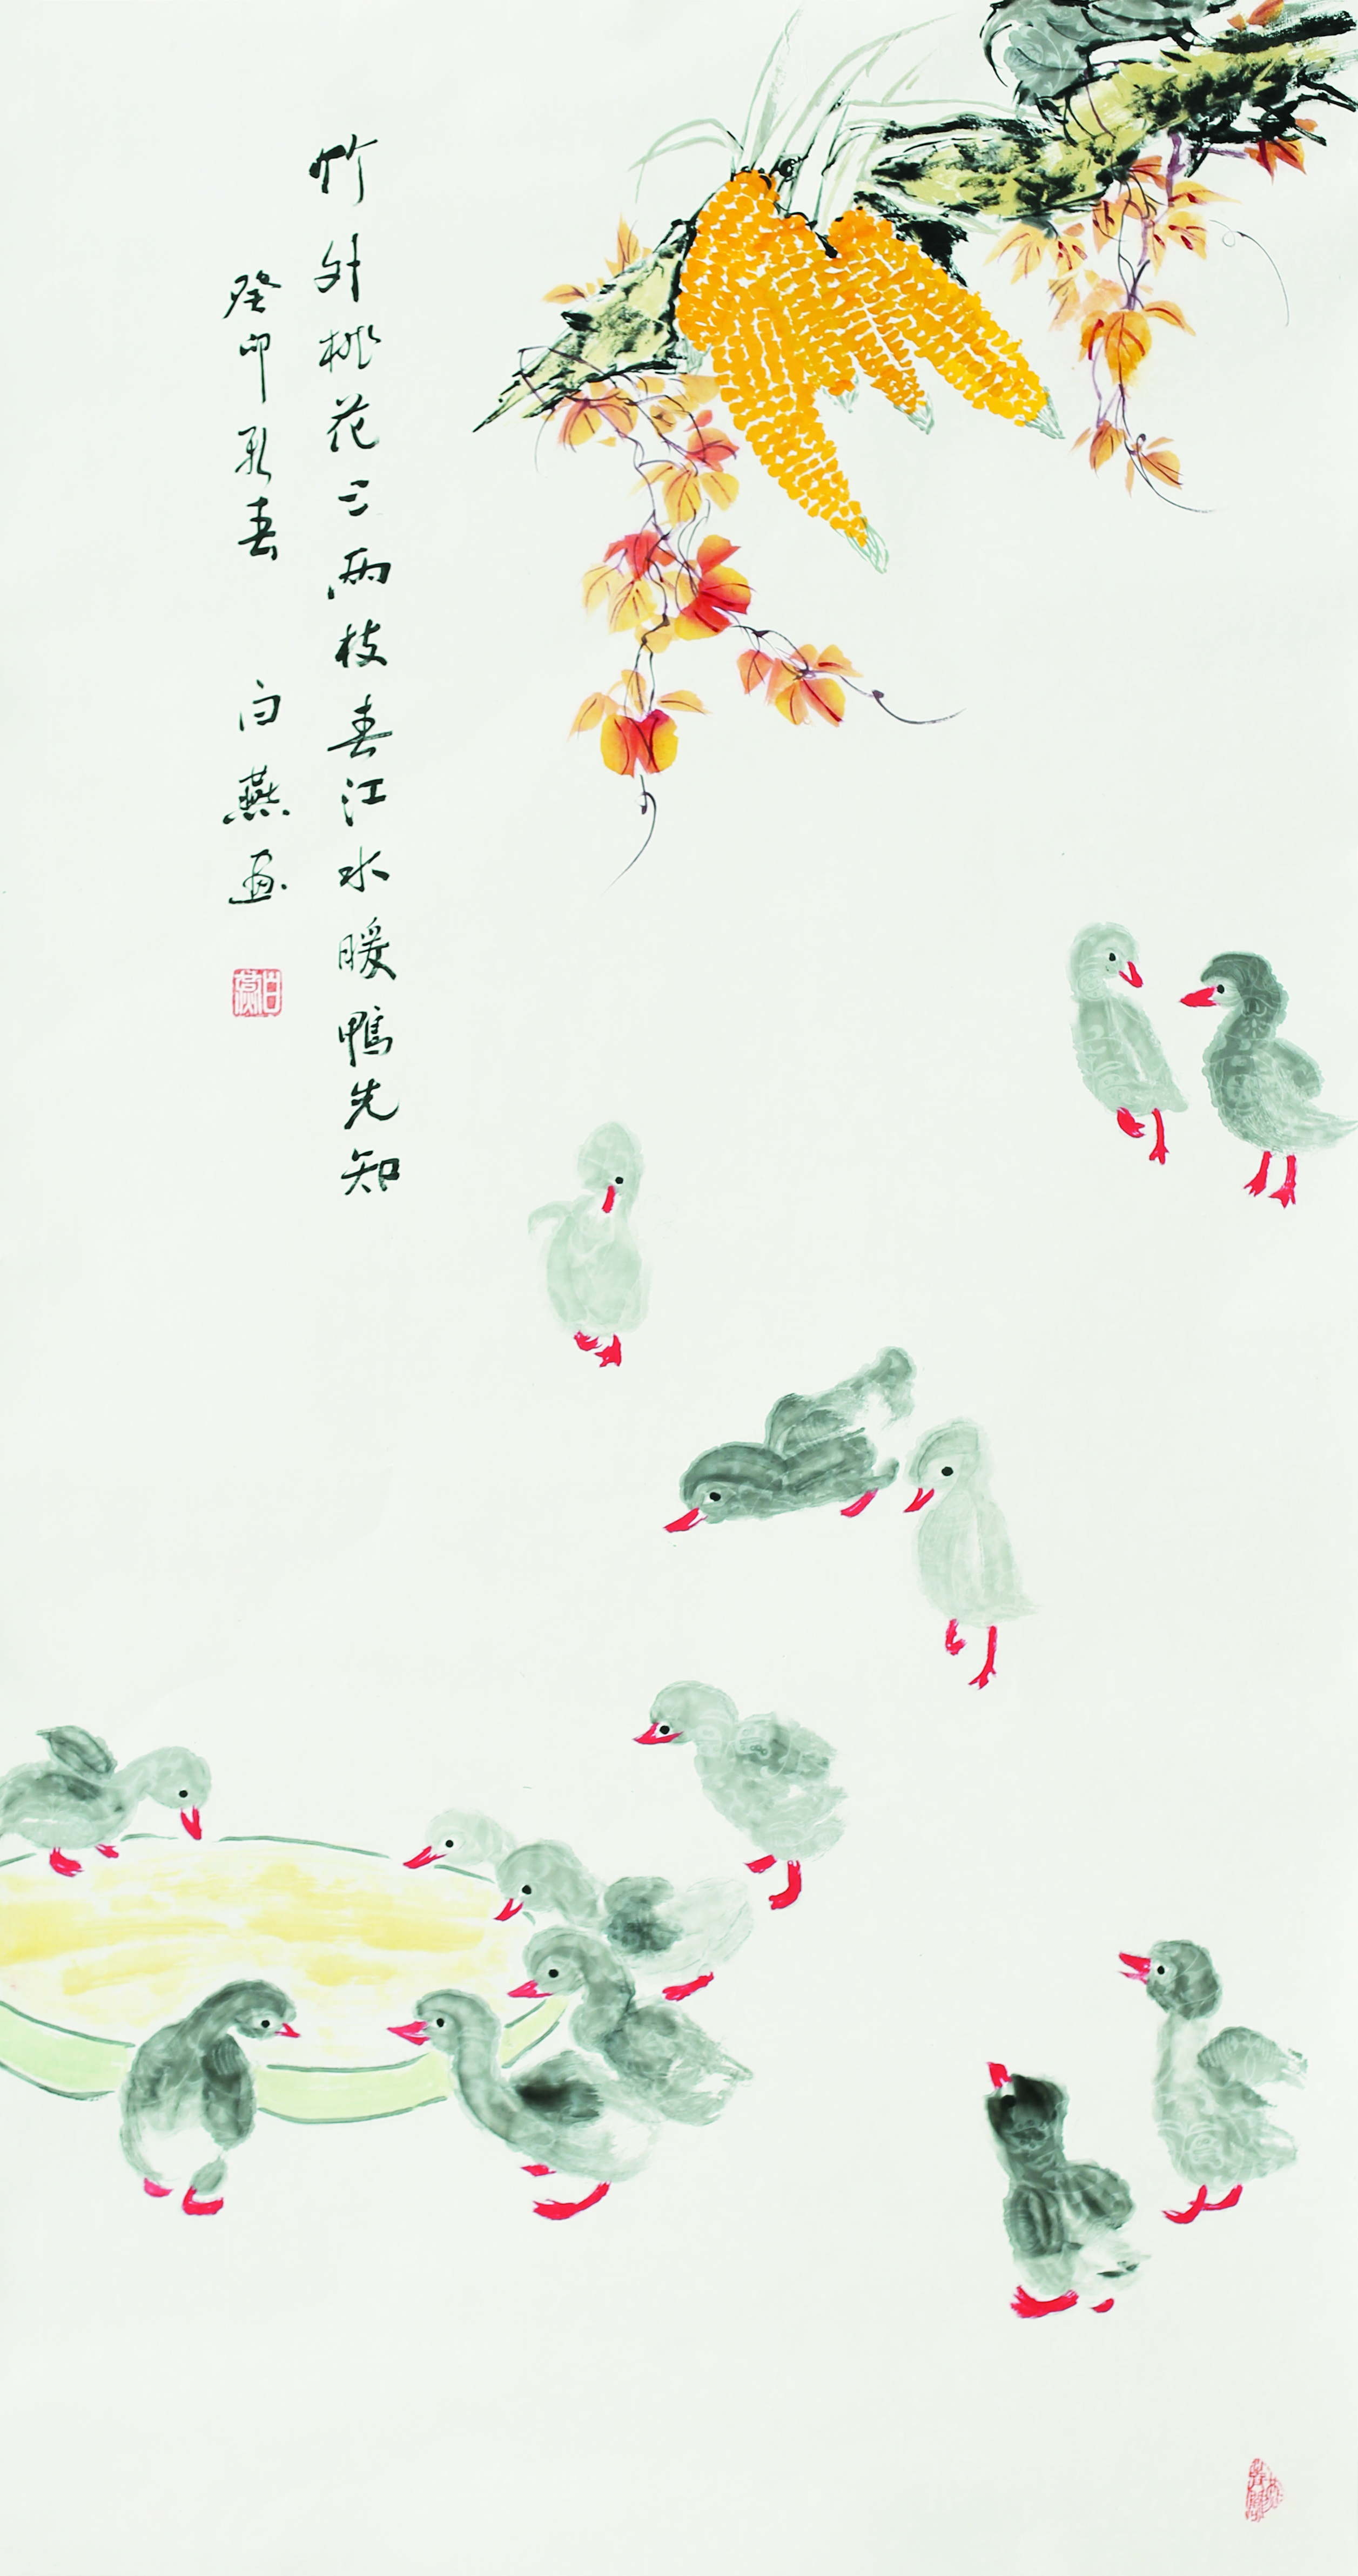 竹外桃花三两枝春江水暖鸭先知
癸卯初春 白燕画
白燕